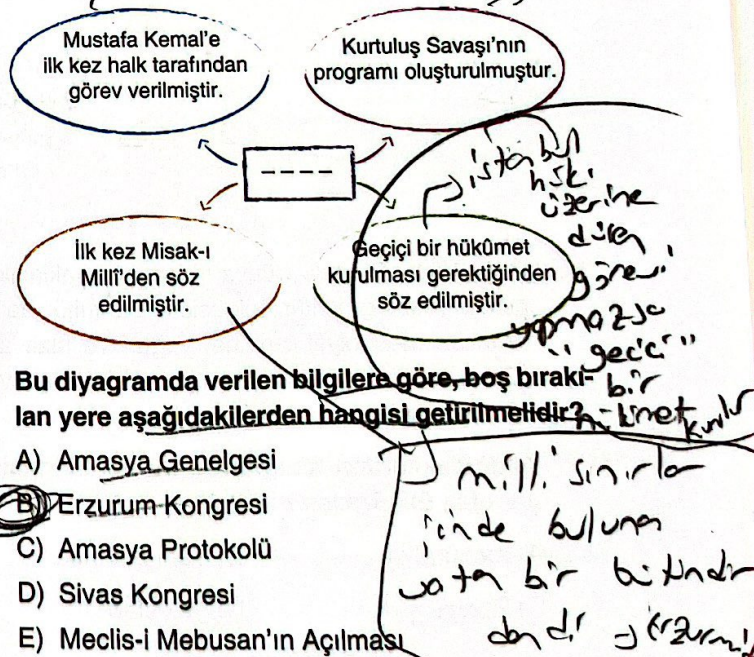 Mustafa Kemal'e
ilk kez halk tarafından
görev verilmiştir.
Kurtuluş Savaşı'nın
programı oluşturulmuştur.
– – – –
İlk kez Misak-ı
Millî'den söz
edilmiştir.
Geçiçi bir hükûmet
kurulması gerektiğinden
söz edilmiştir.
istabul
hsk.
üzerine
düşen
görevi
yapmazsa
"geçici"
bir
hükümet kurulur
Bu diyagramda verilen bilgilere göre, boş bırakı-
lan yere aşağıdakilerden hangisi getirilmelidir?
A) Amasya Genelgesi
B) Erzurum Kongresi
C) Amasya Protokolü
D) Sivas Kongresi
E) Meclis-i Mebusan'ın Açılması
milli sınırlar
içinde bulunan
vatan bir bütündür